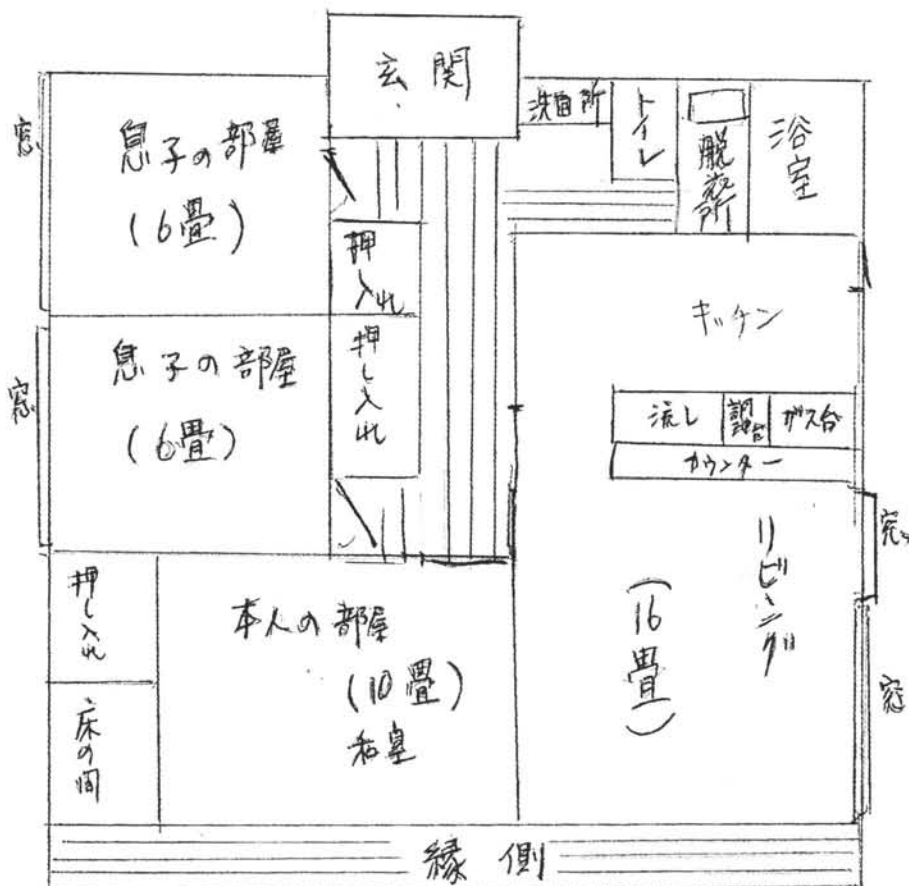 玄関
洗面所
トイレ
脱衣所
浴室
窓
息子の部屋
(6畳)
押入れ
キッチン
窓
息子の部屋
(6畳)
押し入れ
流し
調理台
ガス台
カウンター
窓
リビング
(16畳)
窓
押し入れ
床の間
本人の部屋
(10畳)
和室
縁側